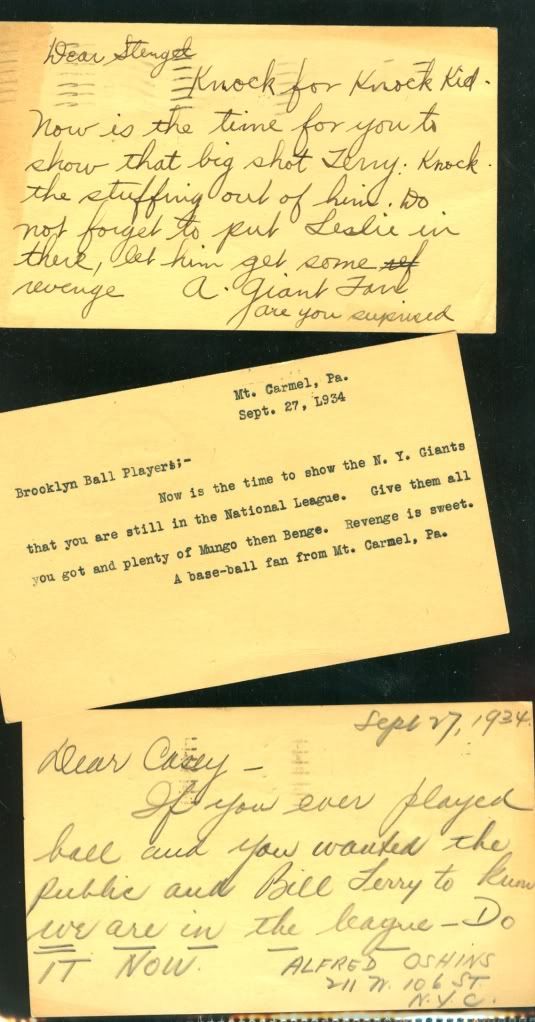 Dear Stengel
Knock for Knock Kid.
Now is the time for you to
show that big shot Terry. Knock
the stuffing out of him. Do
not forget to put Leslie in
there, let him get some ref
revenge A. Giant Fan
are you suprised
Mt. Carmel, Pa.
Sept. 27, L934
Brooklyn Ball Players;-
Now is the time to show the N. Y. Giants
that you are still in the National League. Give them all
you got and plenty of Mungo then Benge. Revenge is sweet.
A base-ball fan from Mt. Carmel, Pa.
Sept 27, 1934.
Dear Casey -
If you ever played
ball and you wanted the
public and Bill Terry to know
we are in the league - Do
IT NOW. ALFRED OSHINS
211 W. 106 ST.
N.Y.C.